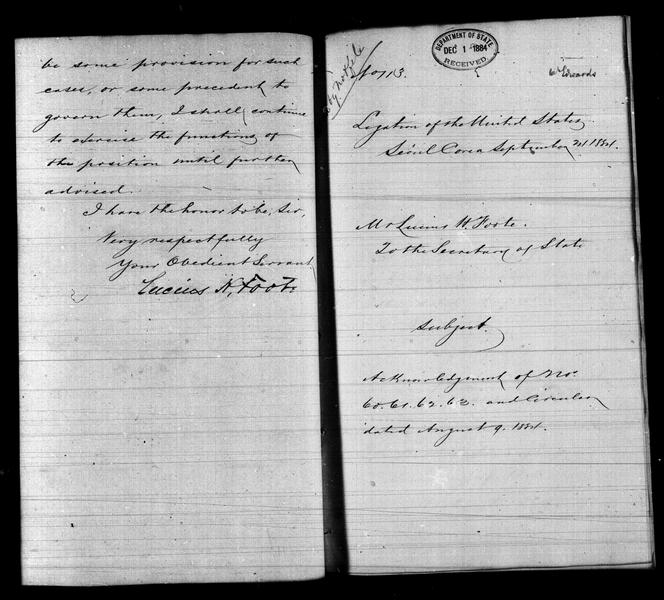 be some provision for such
cases, or some precedent to
govern them, I shall continue
to exercise the functions of
the position until further
advised.
I have the honor to be, Sir,
Very respectfully
Your Obedient Servant
Lucius H. Foote
DEPARTMENT OF STATE
DEC 1 1884
RECEIVED
Legation of the United States
Séoul Corea September 1884.
Mr Lucius H. Foote.
To the Secretary of State
Subject.
Acknowledgement of No.
60. 61. 62. 63. and Circular
dated August 9. 1884.